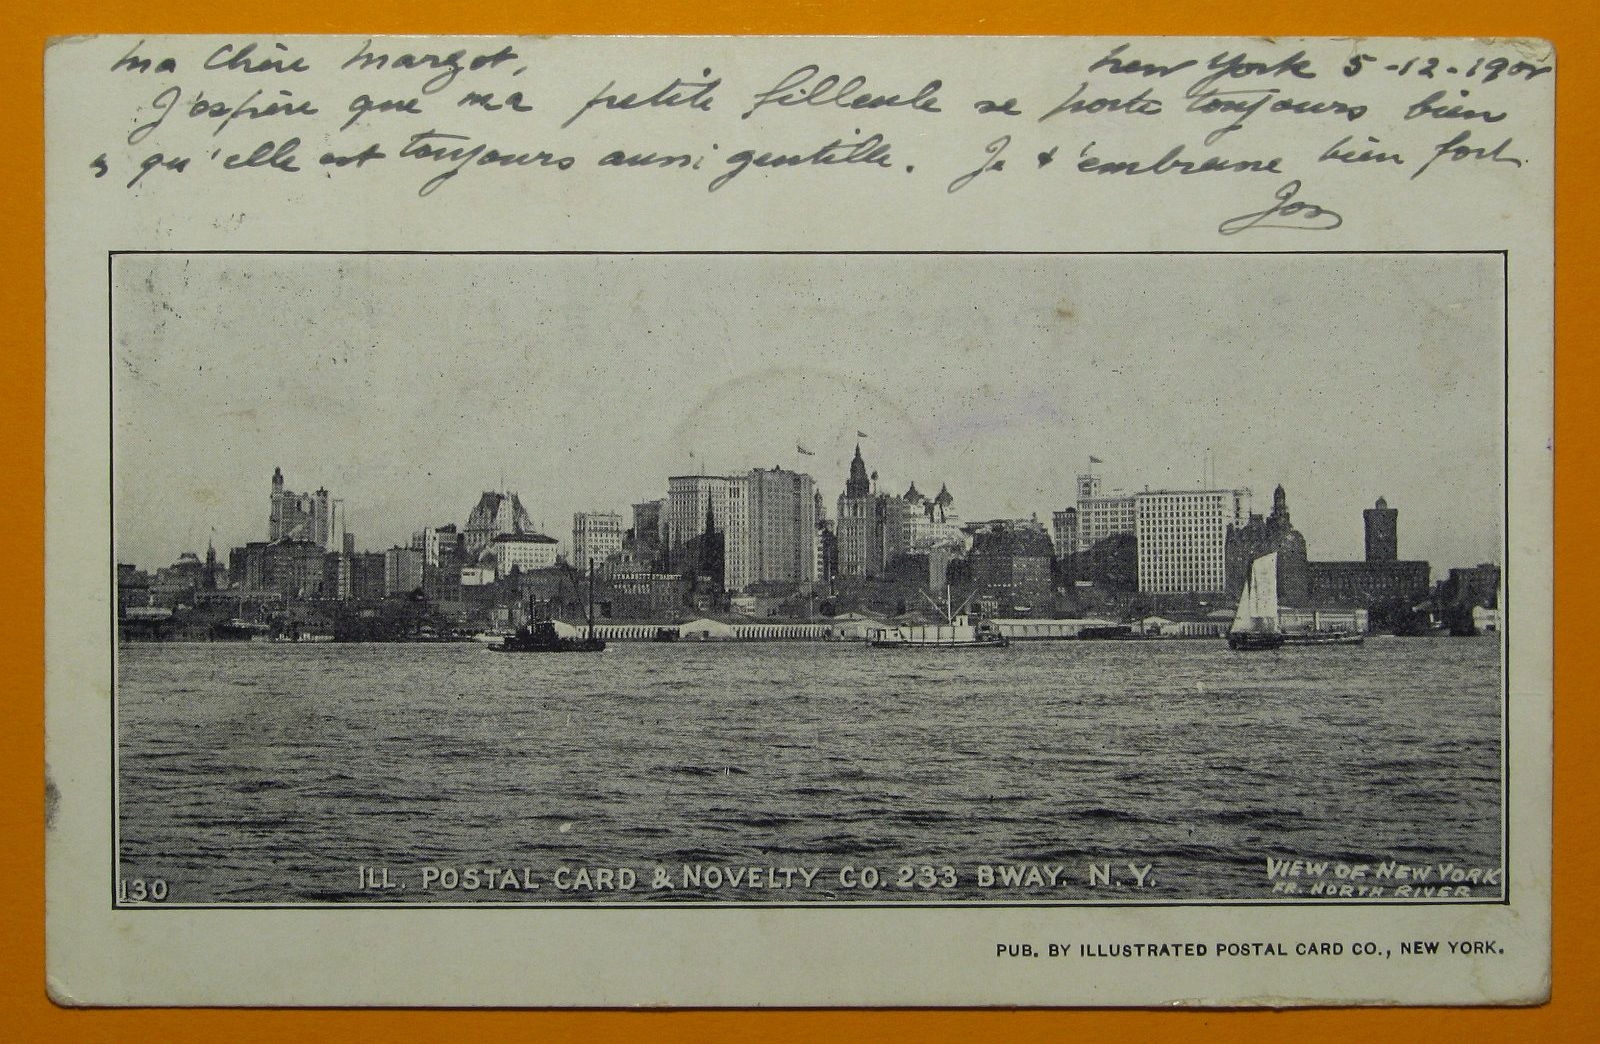 Ma Chère Margot,
New York 5-12-190
J'espère que ma petite filleule se porte toujours bien
& qu'elle est toujours aussi gentille. Je t'embrasse bien fort
130
ILL. POSTAL CARD & NOVELTY CO. 233 BWAY. N.Y.
VIEW OF NEW YORK
FR. NORTH RIVER
PUB. BY ILLUSTRATED POSTAL CARD CO., NEW YORK.